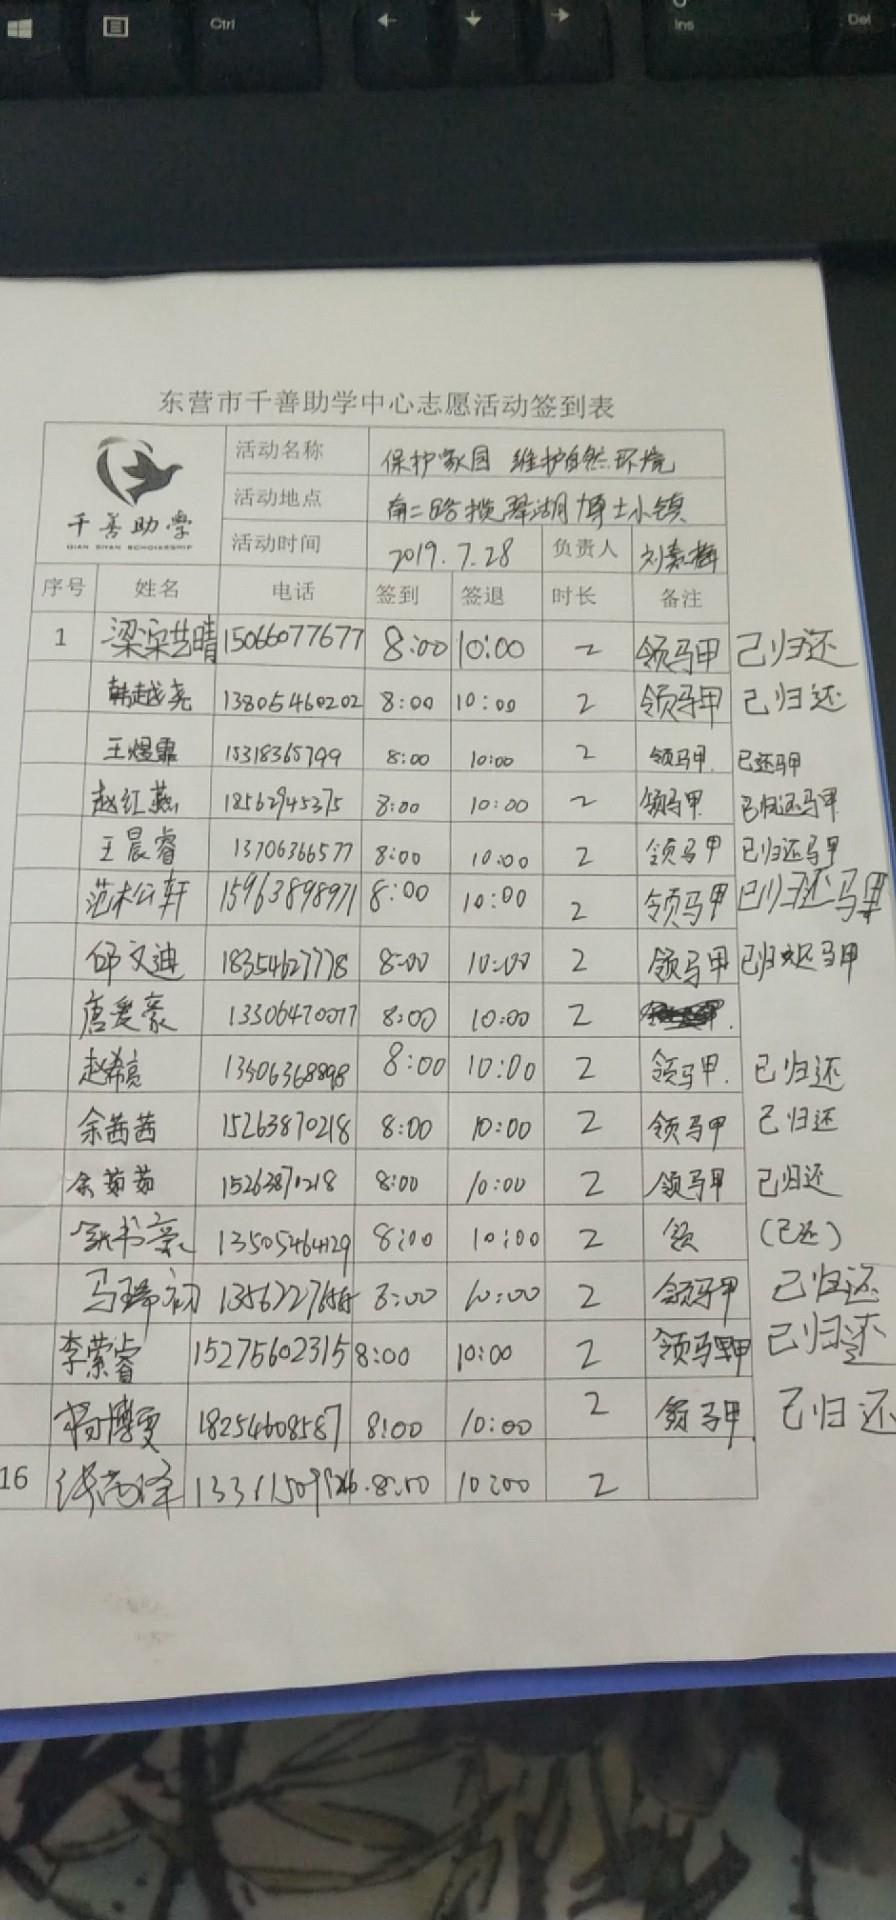 Ctrl
Ins
Del
东营市千善助学中心志愿活动签到表
千善助学
QIAN SHAN SCHOLARSHIP
活动名称 保护家园 维护自然环境
活动地点 南二路揽翠湖博士小镇
活动时间 2019.7.28 负责人 刘素梅
序号 姓名 电话 签到 签退 时长 备注
1 梁宋艺晴 15066077677 8:00 10:00 2 领马甲 已归还
韩越尧 13805460202 8:00 10:00 2 领马甲 已归还
王煜霏 15318365799 8:00 10:00 2 领马甲. 已还马甲
赵红燕 18562945375 8:00 10:00 2 领马甲 已归还马甲
王晨睿 13706366577 8:00 10:00 2 领马甲 已归还马甲
范林公轩 15963898971 8:00 10:00 2 领马甲 已归还马甲
邱文迪 18354627778 8:00 10:00 2 领马甲 已归还马甲
唐爱豪 13306470077 8:00 10:00 2
赵希亮 13506368898 8:00 10:00 2 领马甲. 已归还
余茜茜 15263870218 8:00 10:00 2 领马甲 已归还
余茹茹 15263870218 8:00 10:00 2 领马甲 已归还
书豪 13505464129 8:00 10:00 2 领 (已还)
马瑞初 8:00 10:00 2 领马甲 已归还
李萦睿 15275602315 8:00 10:00 2 领马甲 已归还
杨博雯 18254608587 8:00 10:00 2 领马甲 已归还
16 8:00 10:00 2